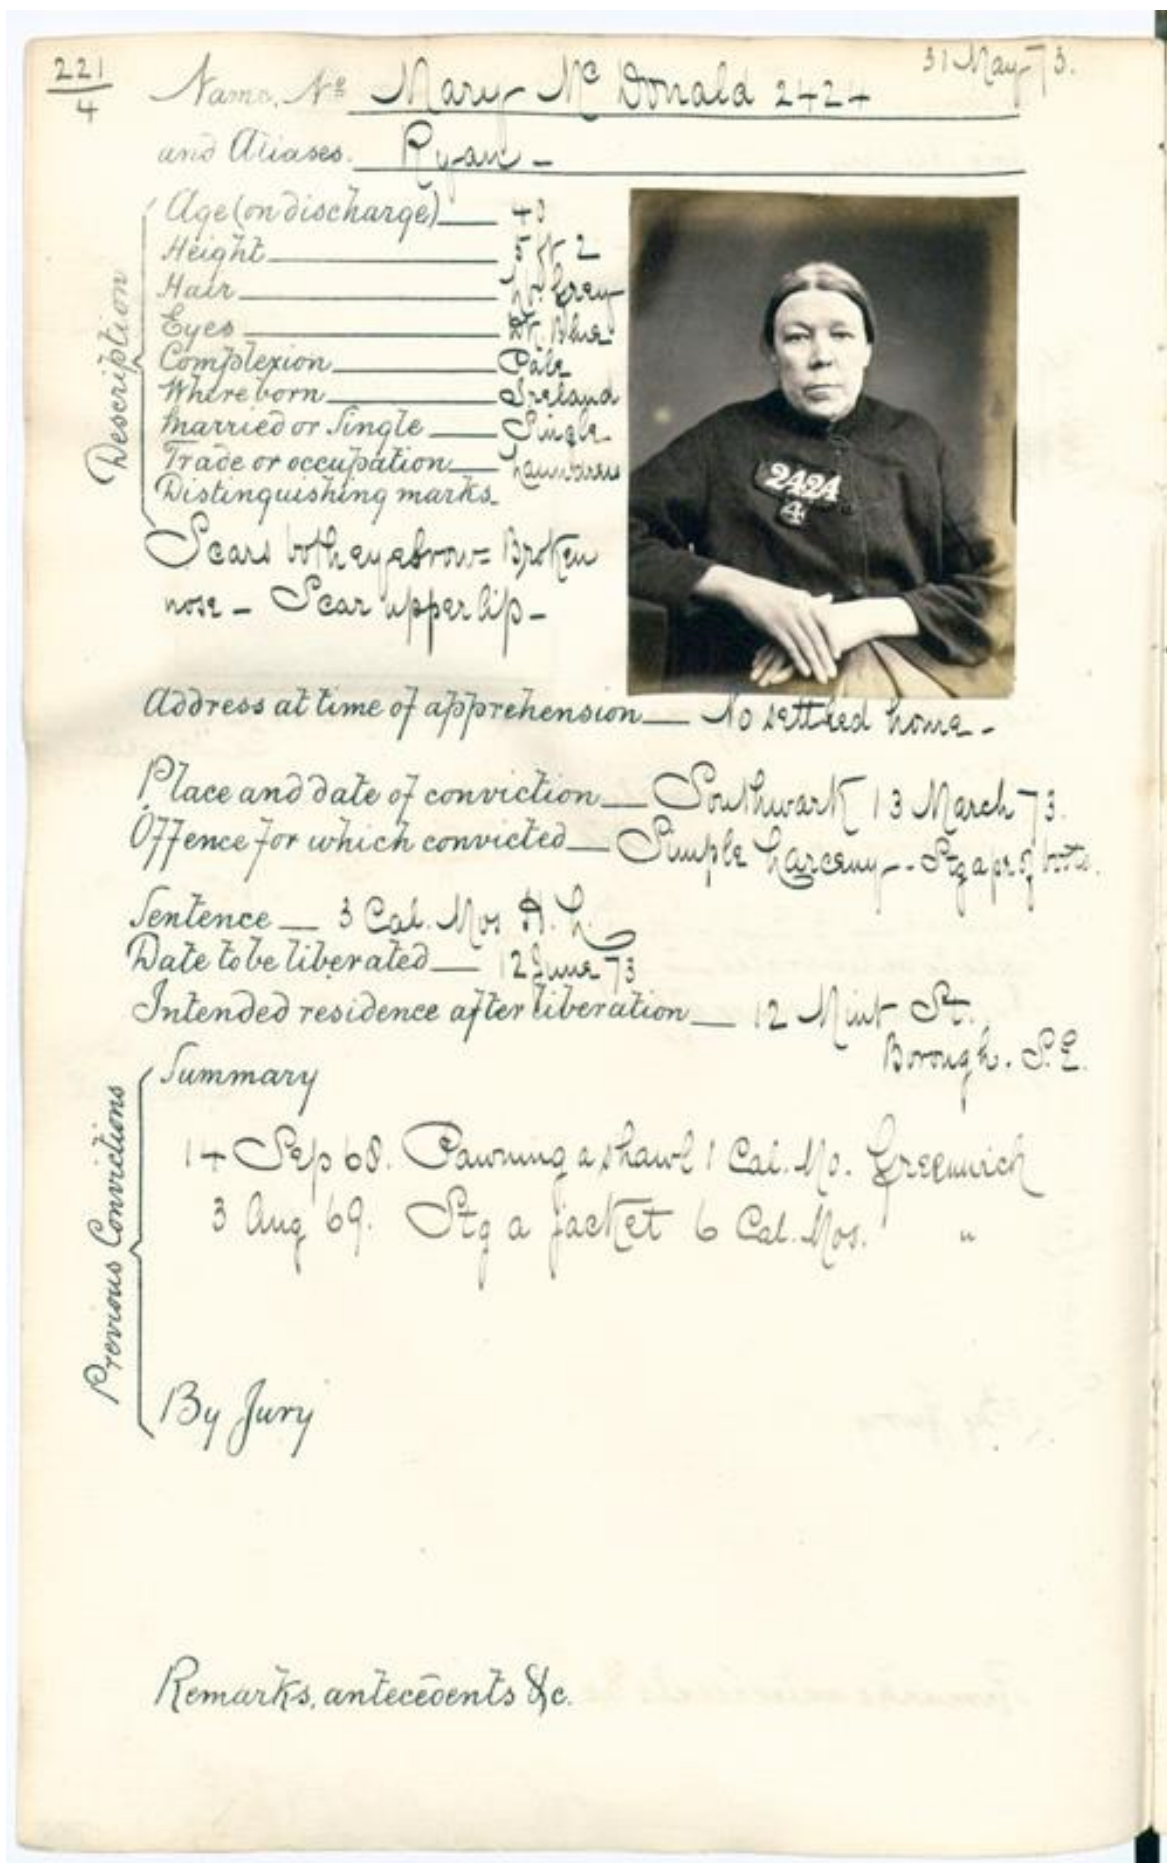 221
4
31 May 73.
Name, No Mary McDonald 2424
and Aliases. Ryan -
Description
Age (on discharge)
Height 5 ft 2
Hair Grey
Eyes Dk. Blue.
Complexion Pale
Where born Ireland
Married or Single Single
Trade or occupation Laundress
Distinguishing marks.
Scars both eyebrow= Broken
nose - Scar upper lip -
2424
4
Address at time of apprehension No settled home -
Place and date of conviction Southwark 13 March 73.
Offence for which convicted Simple Larceny - Stg a pr of boots.
Sentence 3 Cal. Mos H. L.
Date to be liberated 12 June 73
Intended residence after liberation 12 Mint St.
Borough. S.E.
Previous Convictions
Summary
14 Sep 68. Pawning a shawl 1 Cal. Mo. Greenwich
3 Aug 69. Stg a jacket 6 Cal. Mos. "
By Jury
Remarks, antecedents &c.